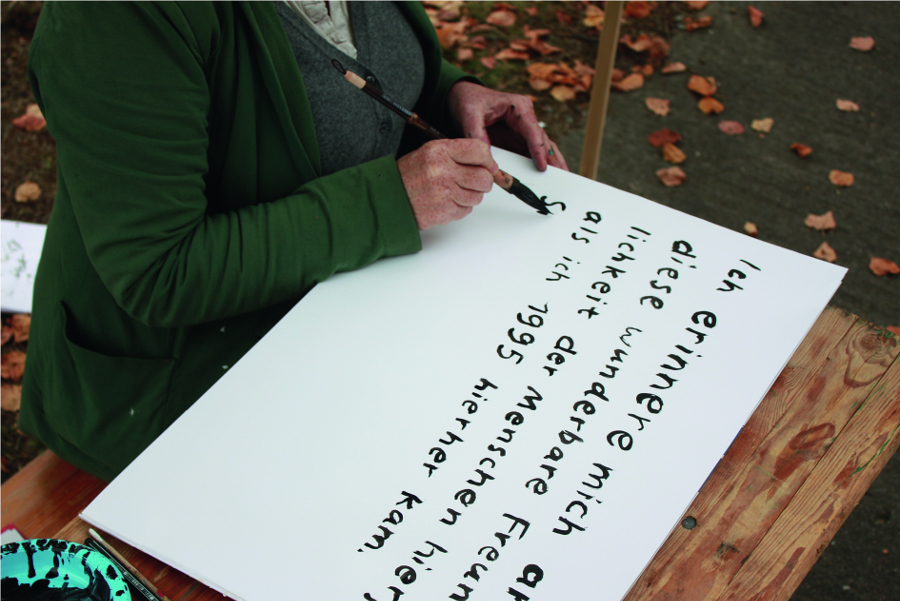 Ich erinnere mich an
diese wunderbare Freun
lichkeit der Menschen hier,
als ich 1995 hierher kam.
S